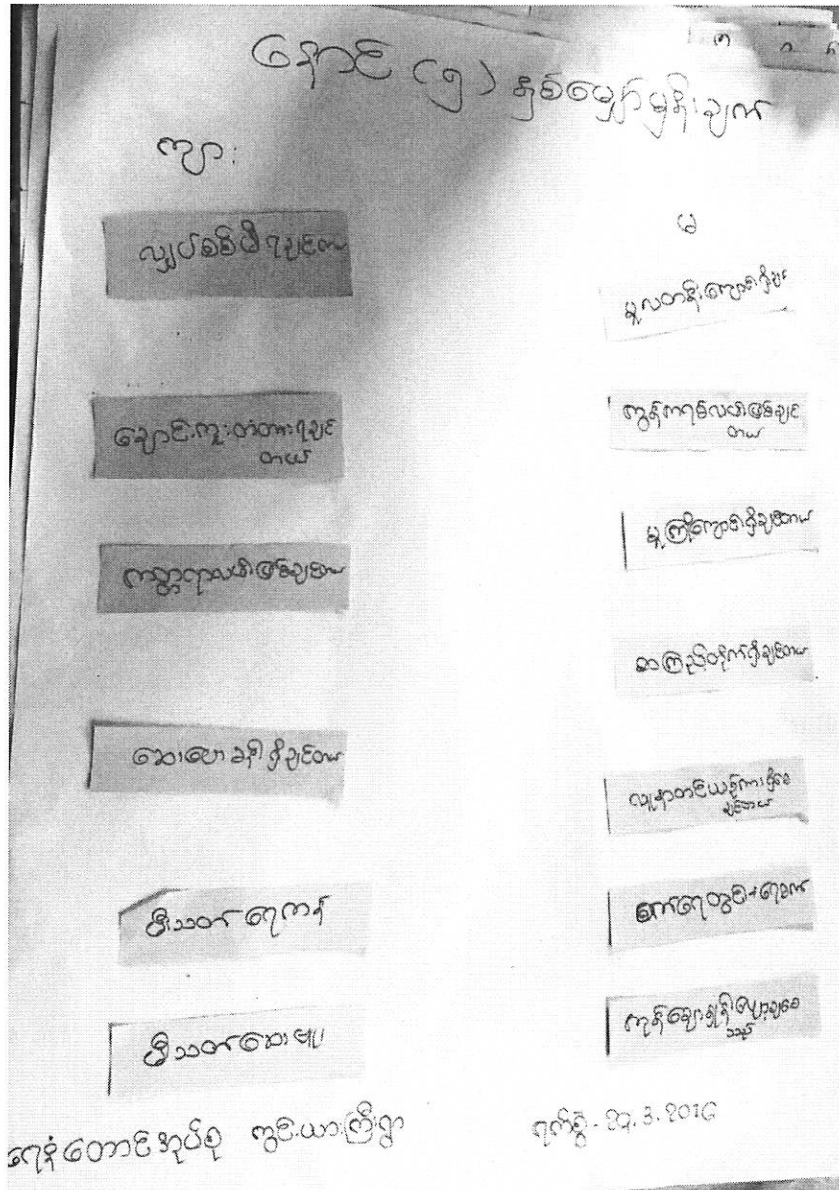 နောင် (၅) နှစ်မျှော်မှန်းချက်
ကျား
လျှပ်စစ်မီးရချင်တယ်
ချောင်းကူးတံတားရချင်
တယ်
ကတ္တရာလမ်းဖြစ်ချင်တယ်
ဆေးပေးခန်းရှိချင်တယ်
မီးသတ်ရေကန်
မီးသတ်ဆေးဗူး
မ
မူလတန်းကျောင်းရှိချင်
ကွန်ကရစ်လမ်းဖြစ်ချင်
တယ်
မူကြိုကျောင်းရှိချင်တယ်
စာကြည့်တိုက်ရှိချင်တယ်
လူနာတင်ယာဉ်ကားရှိစေ
ချင်တယ်
စက်ရေတွင်း
ရေနံတောင်အုပ်စု ကွင်းယားကြီးရွာ
ရက်စွဲ - 29.3.201